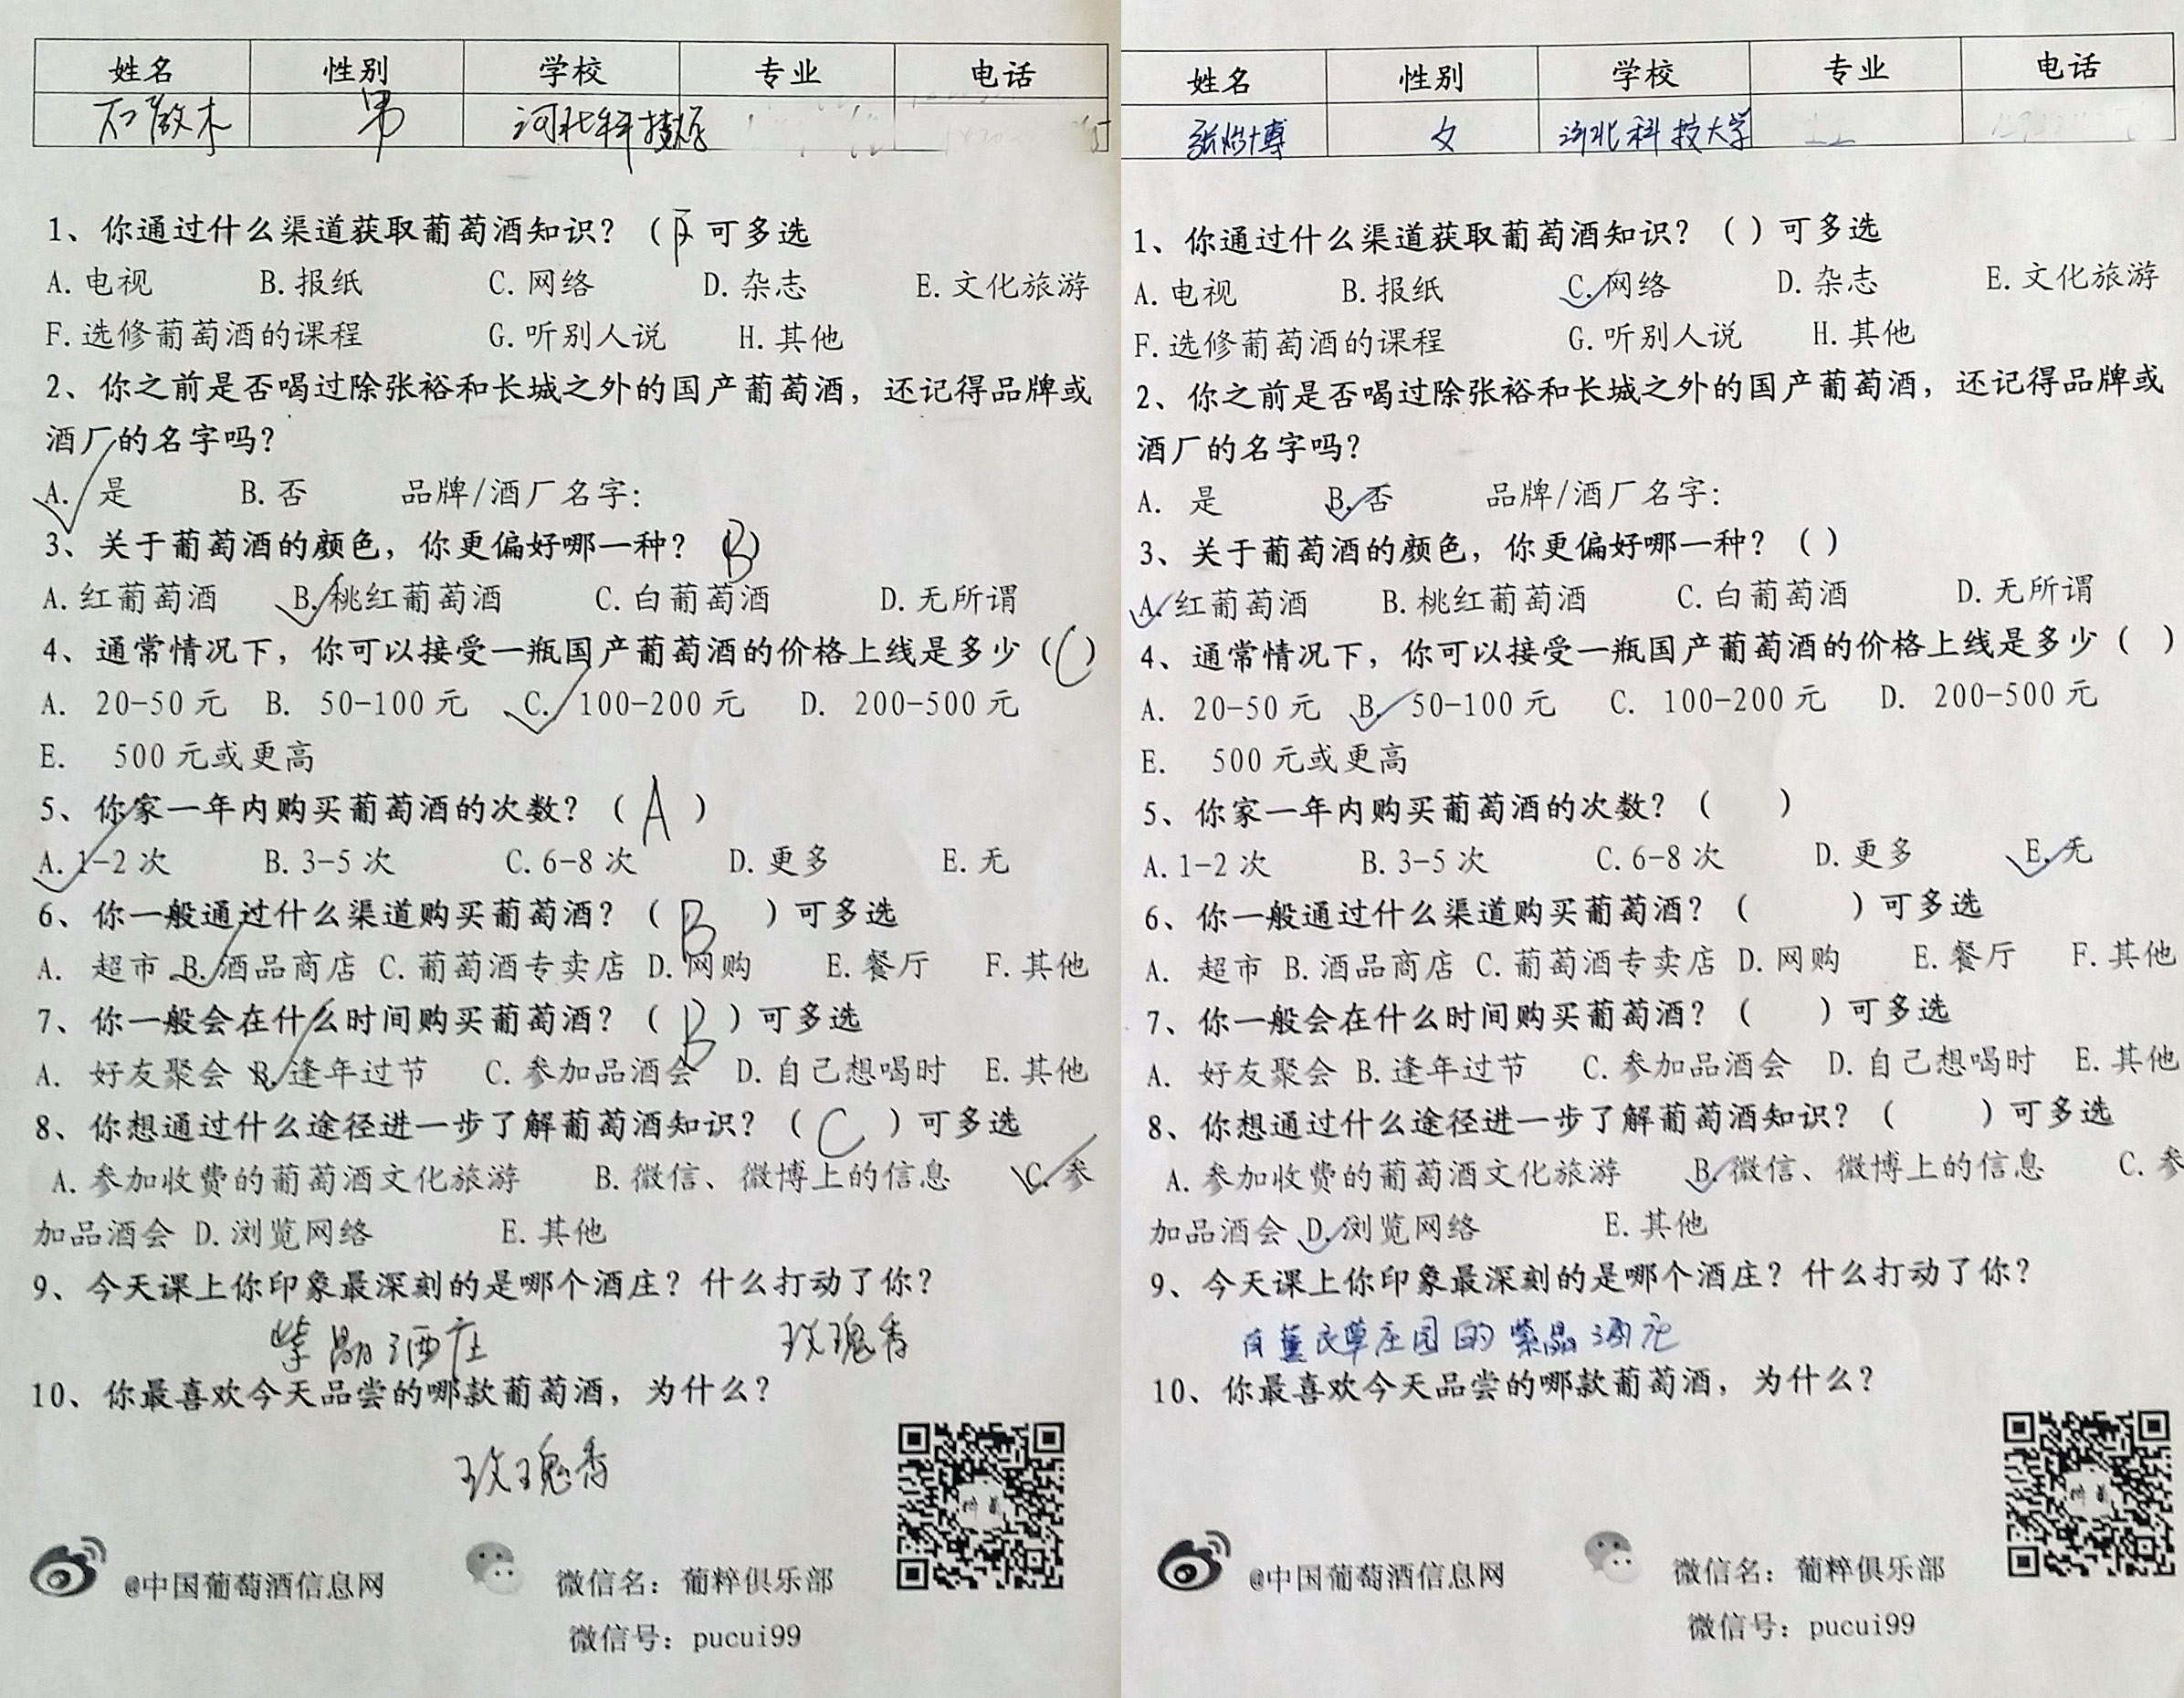 姓名 性别 学校 专业 电话
石敬木 男 河北科技大学
1、你通过什么渠道获取葡萄酒知识？（F）可多选
A.电视 B.报纸 C.网络 D.杂志 E.文化旅游
F.选修葡萄酒的课程 G.听别人说 H.其他
2、你之前是否喝过除张裕和长城之外的国产葡萄酒，还记得品牌或
酒厂的名字吗？
A. 是 B.否 品牌/酒厂名字：
3、关于葡萄酒的颜色，你更偏好哪一种？（B）
A.红葡萄酒 B.桃红葡萄酒 C.白葡萄酒 D.无所谓
4、通常情况下，你可以接受一瓶国产葡萄酒的价格上线是多少（C）
A. 20-50元 B. 50-100元 C. 100-200元 D. 200-500元
E. 500元或更高
5、你家一年内购买葡萄酒的次数？（A）
A.1-2次 B.3-5次 C.6-8次 D.更多 E.无
6、你一般通过什么渠道购买葡萄酒？（B）可多选
A. 超市 B.酒品商店 C.葡萄酒专卖店 D.网购 E.餐厅 F.其他
7、你一般会在什么时间购买葡萄酒？（B）可多选
A. 好友聚会 B.逢年过节 C.参加品酒会 D.自己想喝时 E.其他
8、你想通过什么途径进一步了解葡萄酒知识？（C）可多选
A.参加收费的葡萄酒文化旅游 B.微信、微博上的信息 C.参
加品酒会 D.浏览网络 E.其他
9、今天课上你印象最深刻的是哪个酒庄？什么打动了你？
紫晶酒庄 玫瑰香
10、你最喜欢今天品尝的哪款葡萄酒，为什么？
玫瑰香
@中国葡萄酒信息网 微信名：葡粹俱乐部
微信号：pucui99
姓名 性别 学校 专业 电话
张怡博 女 河北科技大学
1、你通过什么渠道获取葡萄酒知识？（）可多选
A.电视 B.报纸 C.网络 D.杂志 E.文化旅游
F.选修葡萄酒的课程 G.听别人说 H.其他
2、你之前是否喝过除张裕和长城之外的国产葡萄酒，还记得品牌或
酒厂的名字吗？
A. 是 B.否 品牌/酒厂名字：
3、关于葡萄酒的颜色，你更偏好哪一种？（）
A.红葡萄酒 B.桃红葡萄酒 C.白葡萄酒 D.无所谓
4、通常情况下，你可以接受一瓶国产葡萄酒的价格上线是多少（）
A. 20-50元 B. 50-100元 C. 100-200元 D. 200-500元
E. 500元或更高
5、你家一年内购买葡萄酒的次数？（ ）
A.1-2次 B.3-5次 C.6-8次 D.更多 E.无
6、你一般通过什么渠道购买葡萄酒？（ ）可多选
A. 超市 B.酒品商店 C.葡萄酒专卖店 D.网购 E.餐厅 F.其他
7、你一般会在什么时间购买葡萄酒？（ ）可多选
A. 好友聚会 B.逢年过节 C.参加品酒会 D.自己想喝时 E.其他
8、你想通过什么途径进一步了解葡萄酒知识？（ ）可多选
A.参加收费的葡萄酒文化旅游 B.微信、微博上的信息 C.参
加品酒会 D.浏览网络 E.其他
9、今天课上你印象最深刻的是哪个酒庄？什么打动了你？
有薰衣草庄园的紫晶酒庄
10、你最喜欢今天品尝的哪款葡萄酒，为什么？
@中国葡萄酒信息网 微信名：葡粹俱乐部
微信号：pucui99